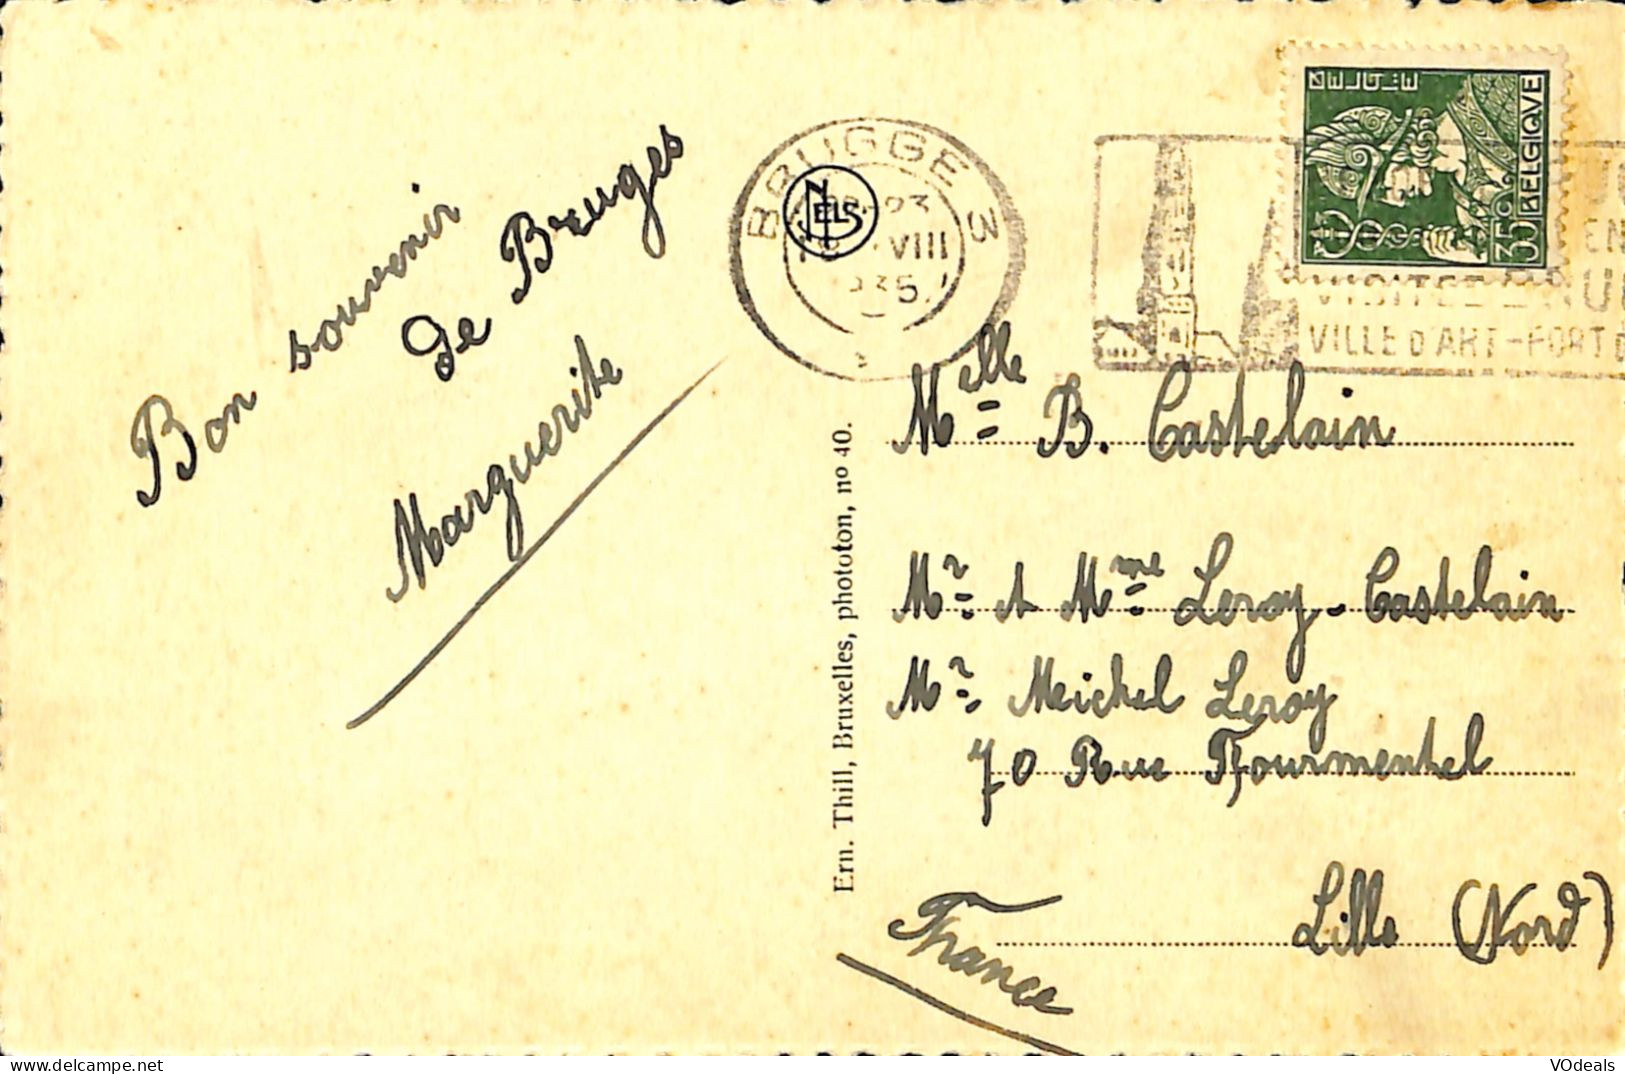 Bon souvenir
de Bruges
Marguerite
BRUGGE 3
23
VIII
35
NELS
BELGIE
BELGIQVE
35c
VISITEZ
VILLE D'ART-PORT
Ern. Thill, Bruxelles, phototon, no 40.
Melle B. Castelain
Mr et Mme Leroy-Castelain
Mr Meichel Leroy
70 Rue Fourmentel
Lille (Nord)
France
VOdeals